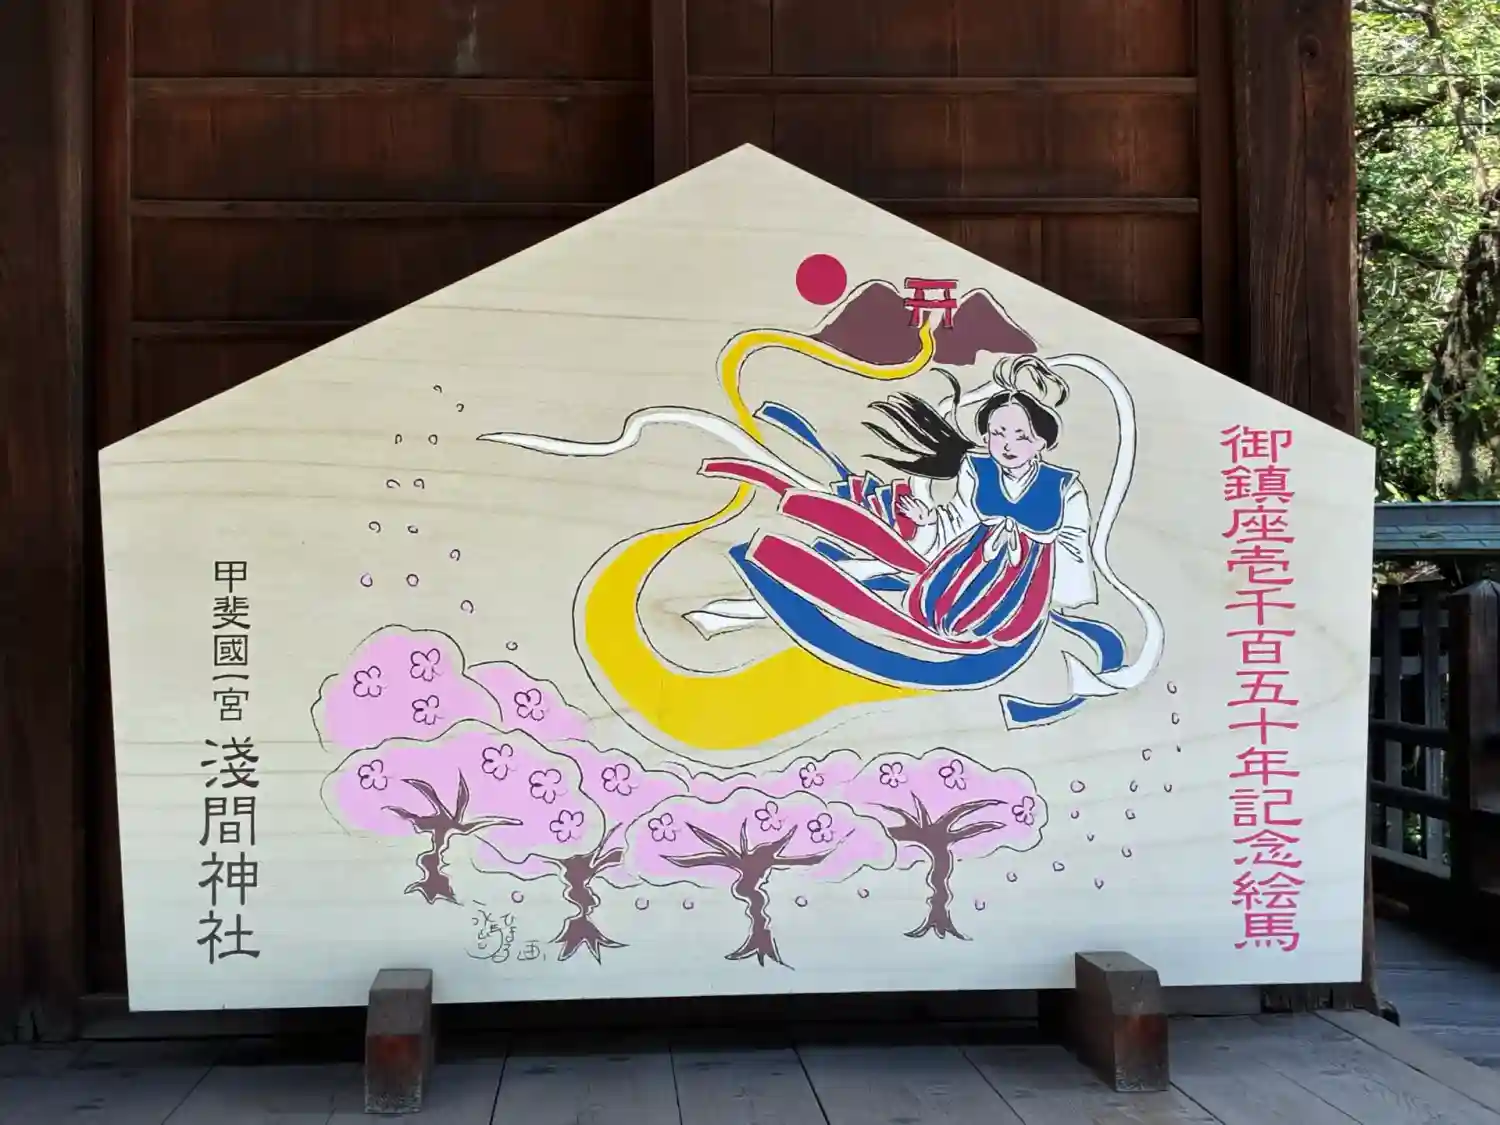 御鎮座壱千百五十年記念絵馬
甲斐國一宮 淺間神社
画